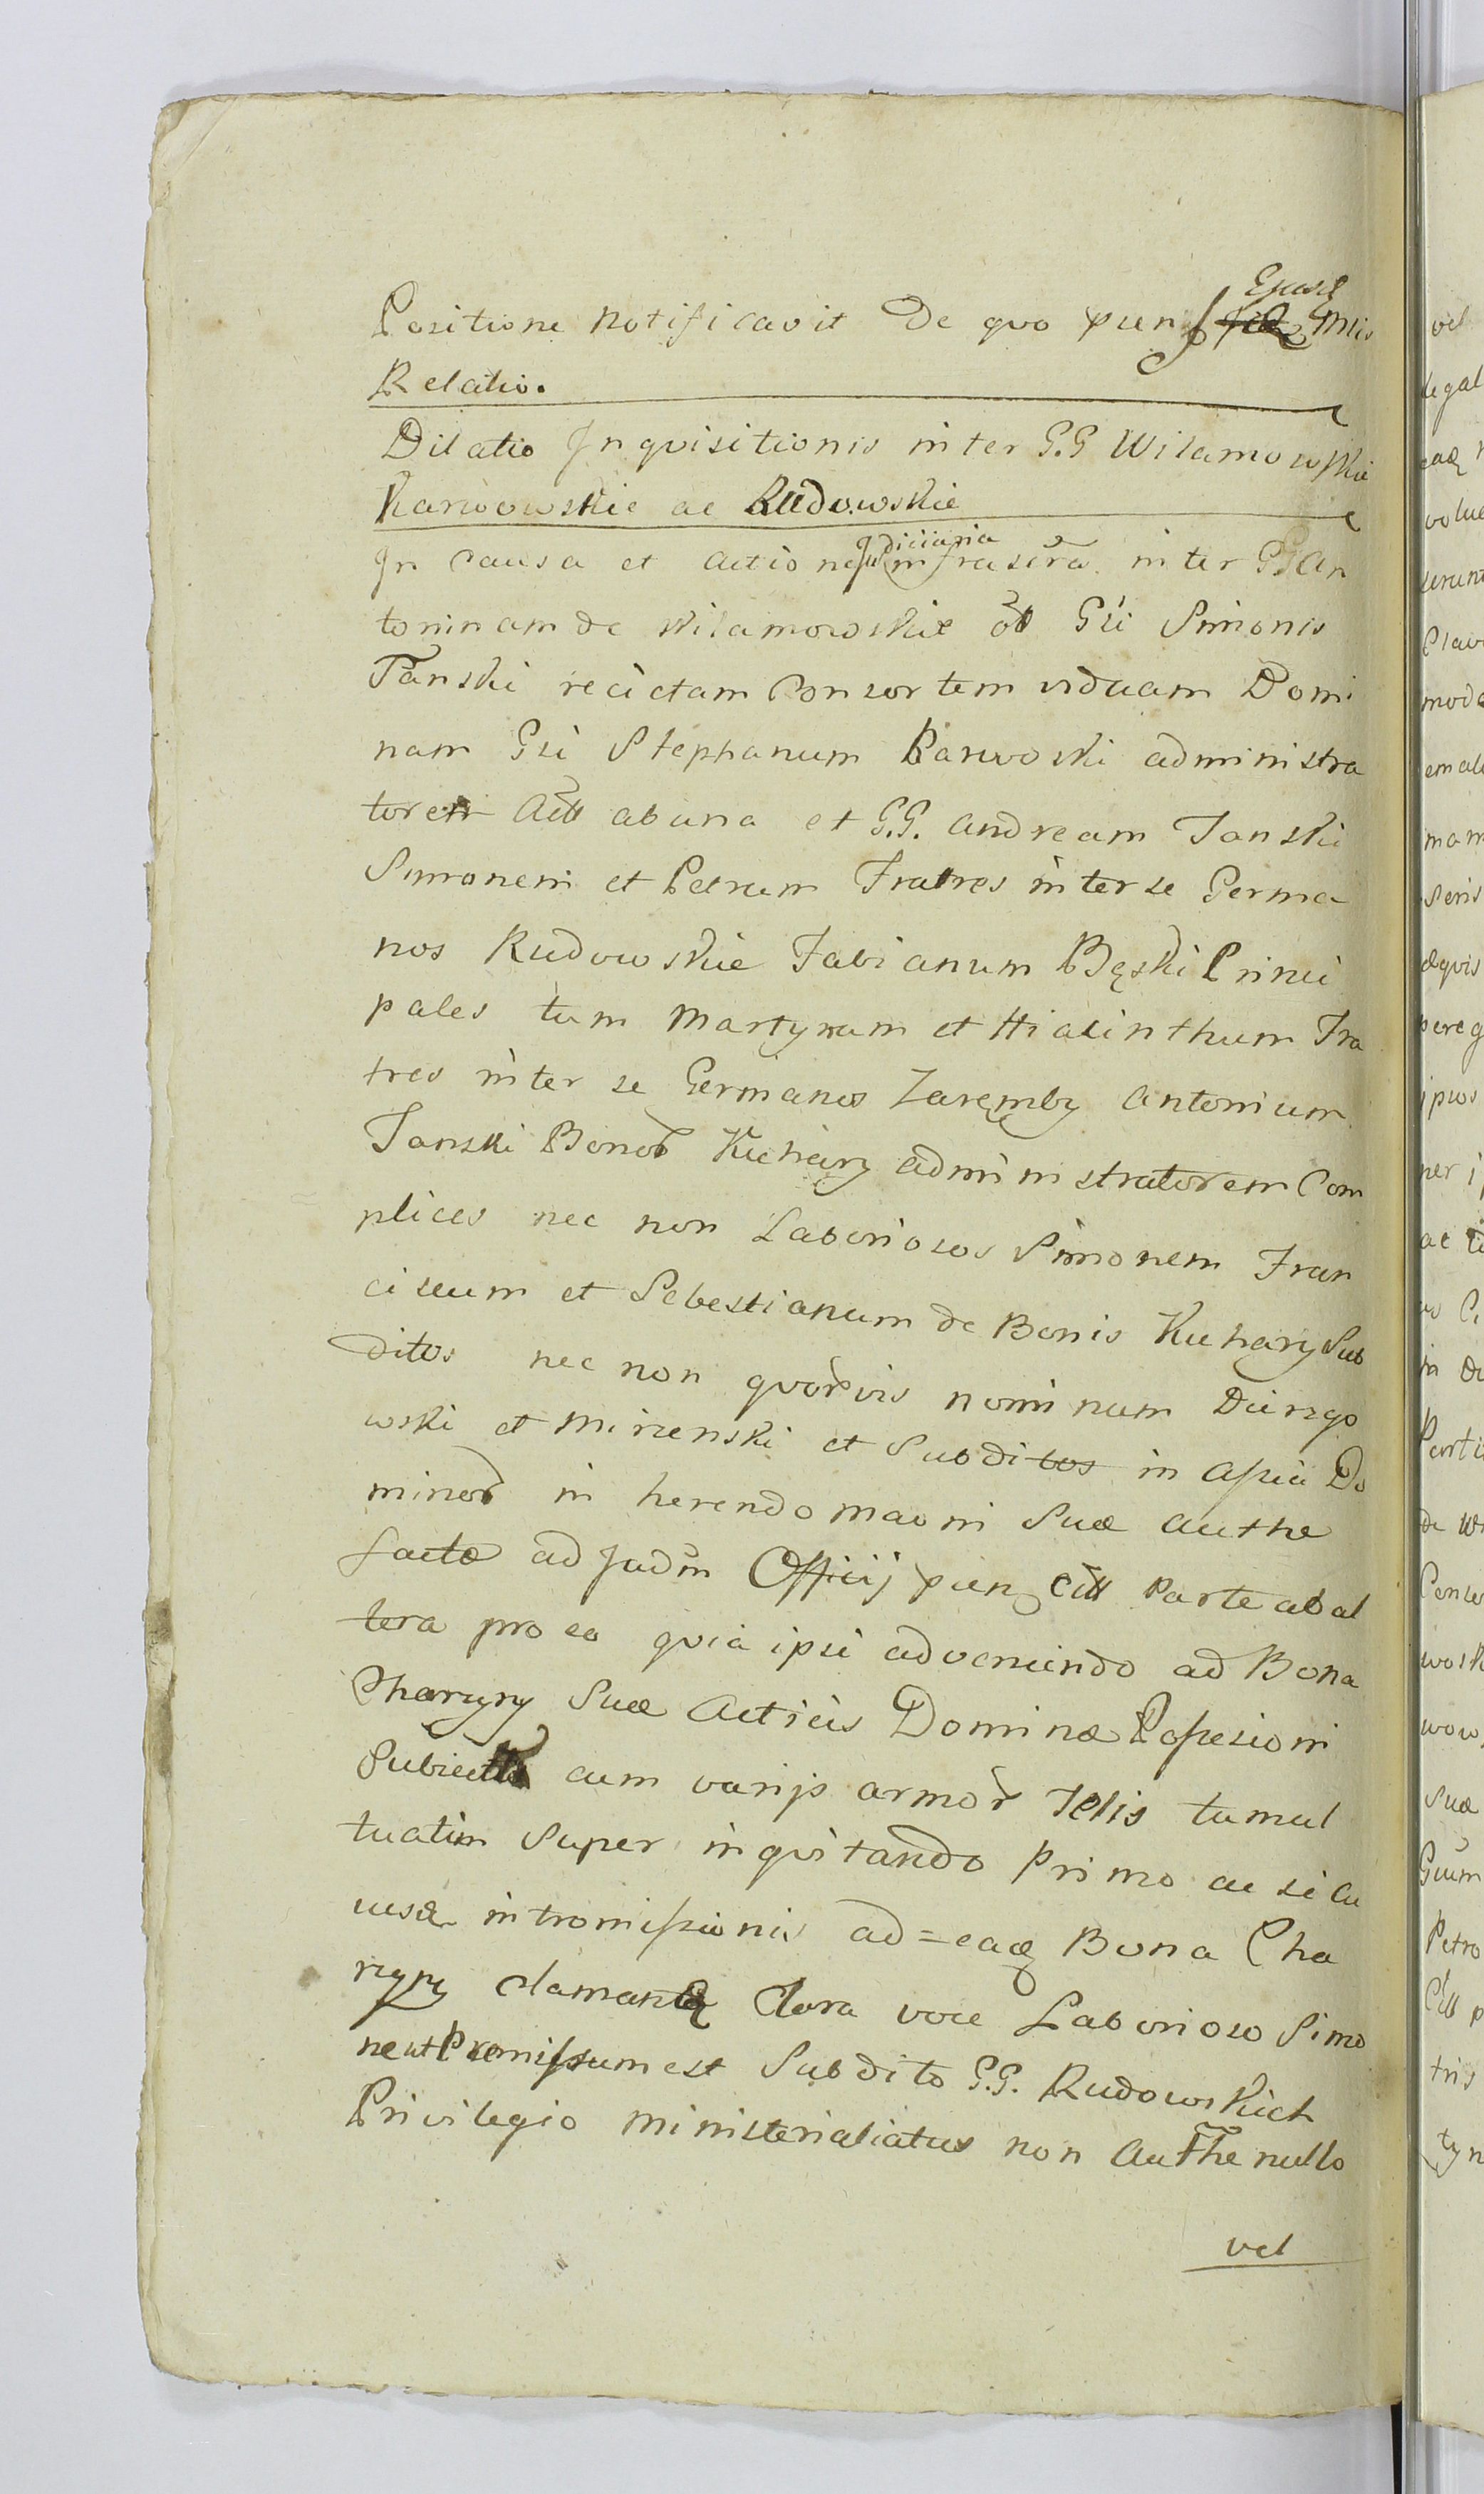 Positione notificavit De quo pien Mlis
Relatio.
Dilatio Inqvisitionis inter G.G Wilamowskie
Karwowskie ac Rudowskie
In Causa et actione Judiciaria infrascra inter GG An
toninam de Wilamowskie Gsi Simonis
Tanski relictam Consortem viduam Domi
nam Gsi Stephanum Karwoski administra
torem Actt abuna et G.G. Andream Tanski
Simonem et Petrum Fratres inter se Germa
nos Rudowskie Fabianum Bęski Princi
pales tum Martynum et Hiacinthum Fra
tres inter se Germanos Zaremby Antonium
Tanski Bonor Kuchary administratorem Com
plices nec non Laboriosos Simonem Fran
ciscum et Sebestianum de Bonis Kuchary Sub
ditos nec non qvorvis nominum Dzięgo
wski et Mirzenski et Subditos in Assia Do
minor in herendo maoni Suæ authe
factæ ad Judm Officij pien Citt Parte ab al
tera pro eo qvia ipsi adveniendo ad Bona
Charzyny Suæ Acticis Dominæ Possesioni
Subiecta cum varijs armor Telis tumul
tuatim Super inqvitando primo ac si cu
iusd intromissionis ad=eaq Bona Cha
rzyny clamante Clara voce Laborioso Simo
ne ut Premissum est Subdito G.G. Rudowskich
Privilegio ministerialiatus non authe nullo
vel